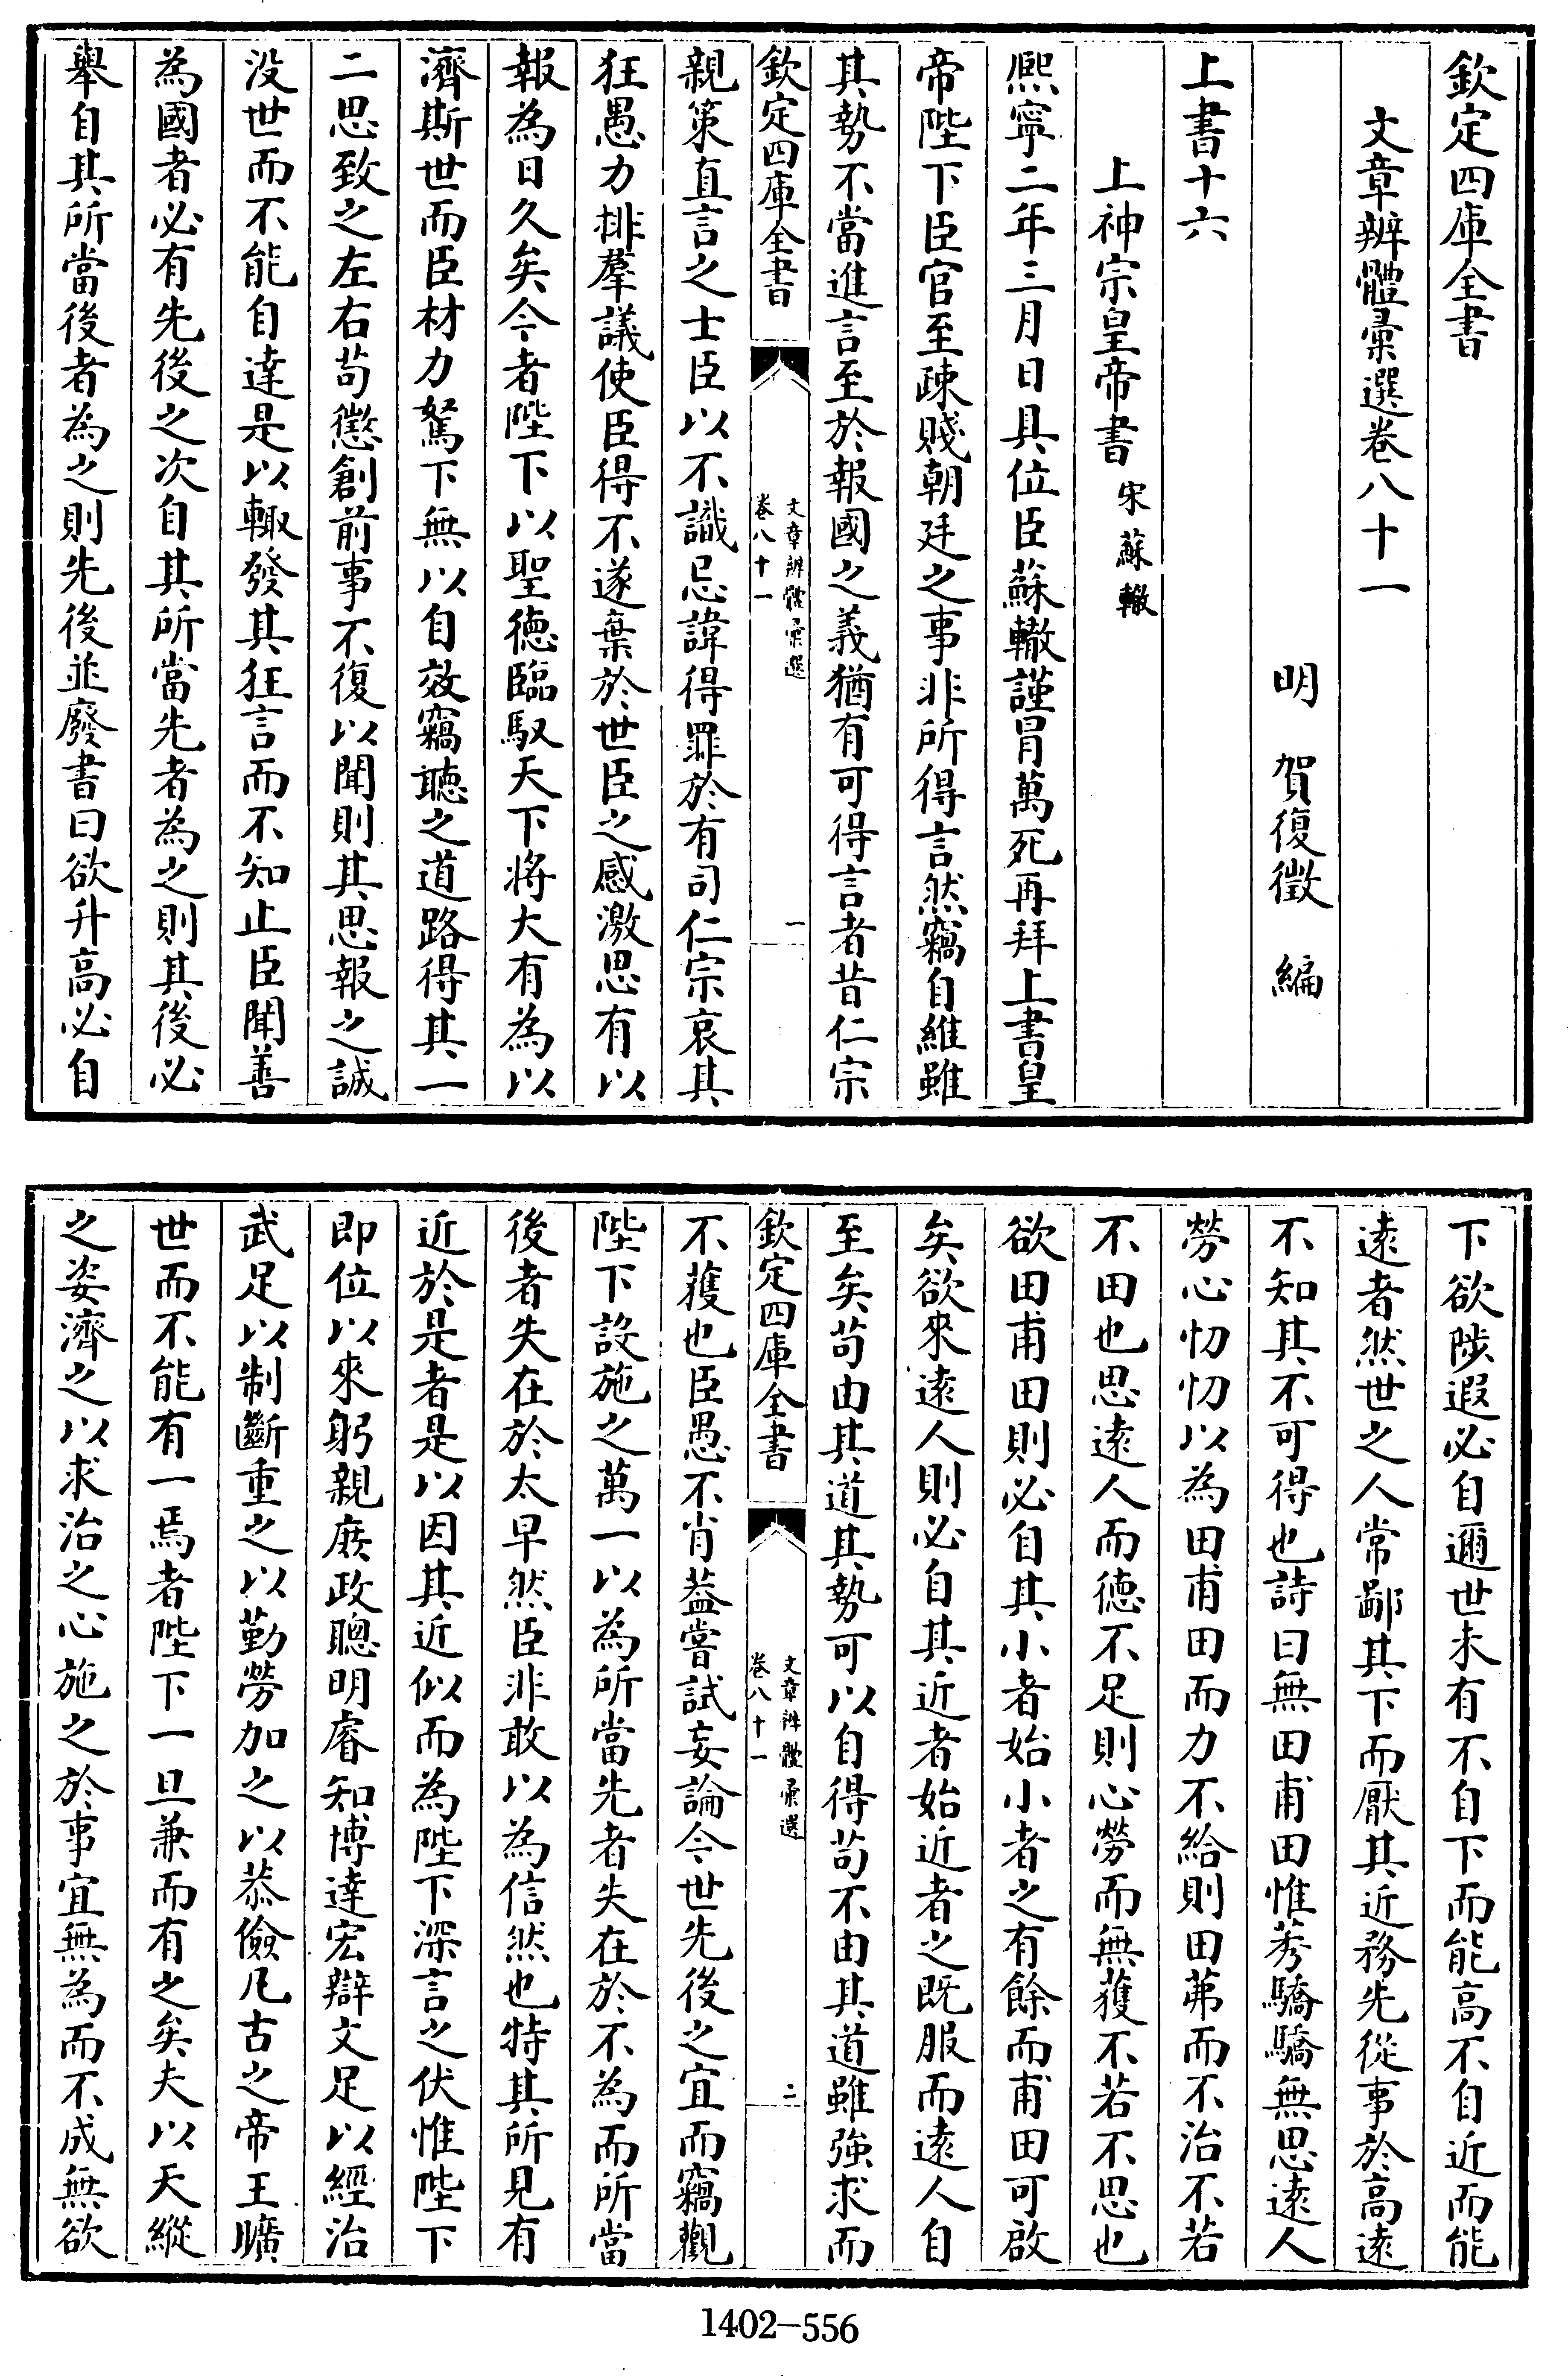 欽定四庫全書
文章辨體彙選卷八十一
明 賀復徵 編
上書十六
上神宗皇帝書 宋蘇轍
熈寧二年三月日具位臣蘇轍謹冒萬死再拜上書皇
帝陛下臣官至疎賤朝廷之事非所得言然竊自維雖
其勢不當進言至於報國之義猶有可得言者昔仁宗
欽定四庫全書
文章辨體彙選
卷八十一
一
親策直言之士臣以不識忌諱得罪於有司仁宗哀其
狂愚力排羣議使臣得不遂棄於世臣之感激思有以
報為日久矣今者陛下以聖德臨馭天下將大有為以
濟斯世而臣材力駑下無以自效竊聽之道路得其一
二思致之左右苟懲創前事不復以聞則其思報之誠
没世而不能自達是以輙發其狂言而不知止臣聞善
為國者必有先後之次自其所當先者為之則其後必
舉自其所當後者為之則先後並廢書曰欲升高必自
下欲陟遐必自邇世未有不自下而能高不自近而能
遠者然世之人常鄙其下而厭其近務先從事於高遠
不知其不可得也詩曰無田甫田惟莠驕驕無思遠人
勞心忉忉以為田甫田而力不給則田茀而不治不若
不田也思遠人而德不足則心勞而無獲不若不思也
欲田甫田則必自其小者始小者之有餘而甫田可啟
矣欲來遠人則必自其近者始近者之既服而遠人自
至矣苟由其道其勢可以自得苟不由其道雖強求而
欽定四庫全書
文章辨體彙選
卷八十一
二
不獲也臣愚不肖葢嘗試妄論今世先後之宜而竊觀
陛下設施之萬一以為所當先者失在於不為而所當
後者失在於太早然臣非敢以為信然也特其所見有
近於是者是以因其近似而為陛下深言之伏惟陛下
即位以來躬親庶政聰明睿知博達宏辯文足以經治
武足以制斷重之以勤勞加之以恭儉凡古之帝王曠
世而不能有一焉者陛下一旦兼而有之矣夫以天縱
之姿濟之以求治之心施之於事宜無為而不成無欲
1402-556